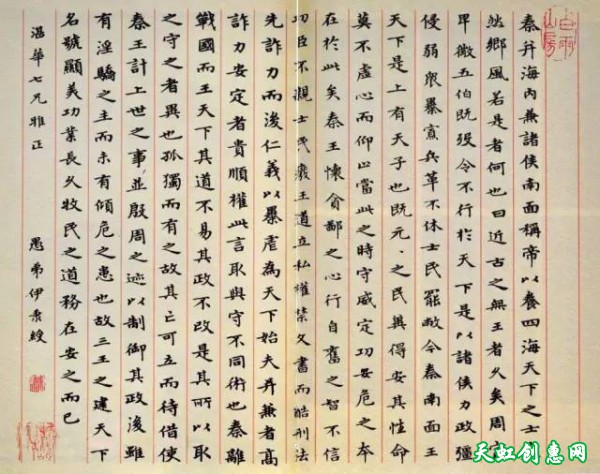 秦并海內兼諸侯南面稱帝以養四海天下之士
然鄉風若是者何也曰近古之無王者久矣周室
卑微五伯既殁令不行於天下是以諸侯力政彊
侵弱眾暴寡兵革不休士民罷敝今秦南面王
天下是上有天子也既元〻之民冀得安其性命
莫不虛心而仰上當此之時守威定功安危之本
在於此矣秦王懷貪鄙之心行自奮之智不信
功臣不親士民廢王道立私權禁文書而酷刑法
先詐力而後仁義以暴虐為天下始夫并兼者高
詐力安定者貴順權此言取與守不同術也秦離
戰國而王天下其道不易其政不改是其所以取
之守之者異也孤獨而有之故其亡可立而待借使
秦王計上世之事並殷周之迹以制御其政後雖
有淫驕之主而未有傾危之患也故三王之建天下
名號顯美功業長久牧民之道務在安之而已
湛華七兄雅正
愚弟伊秉綬
天虹创惠网